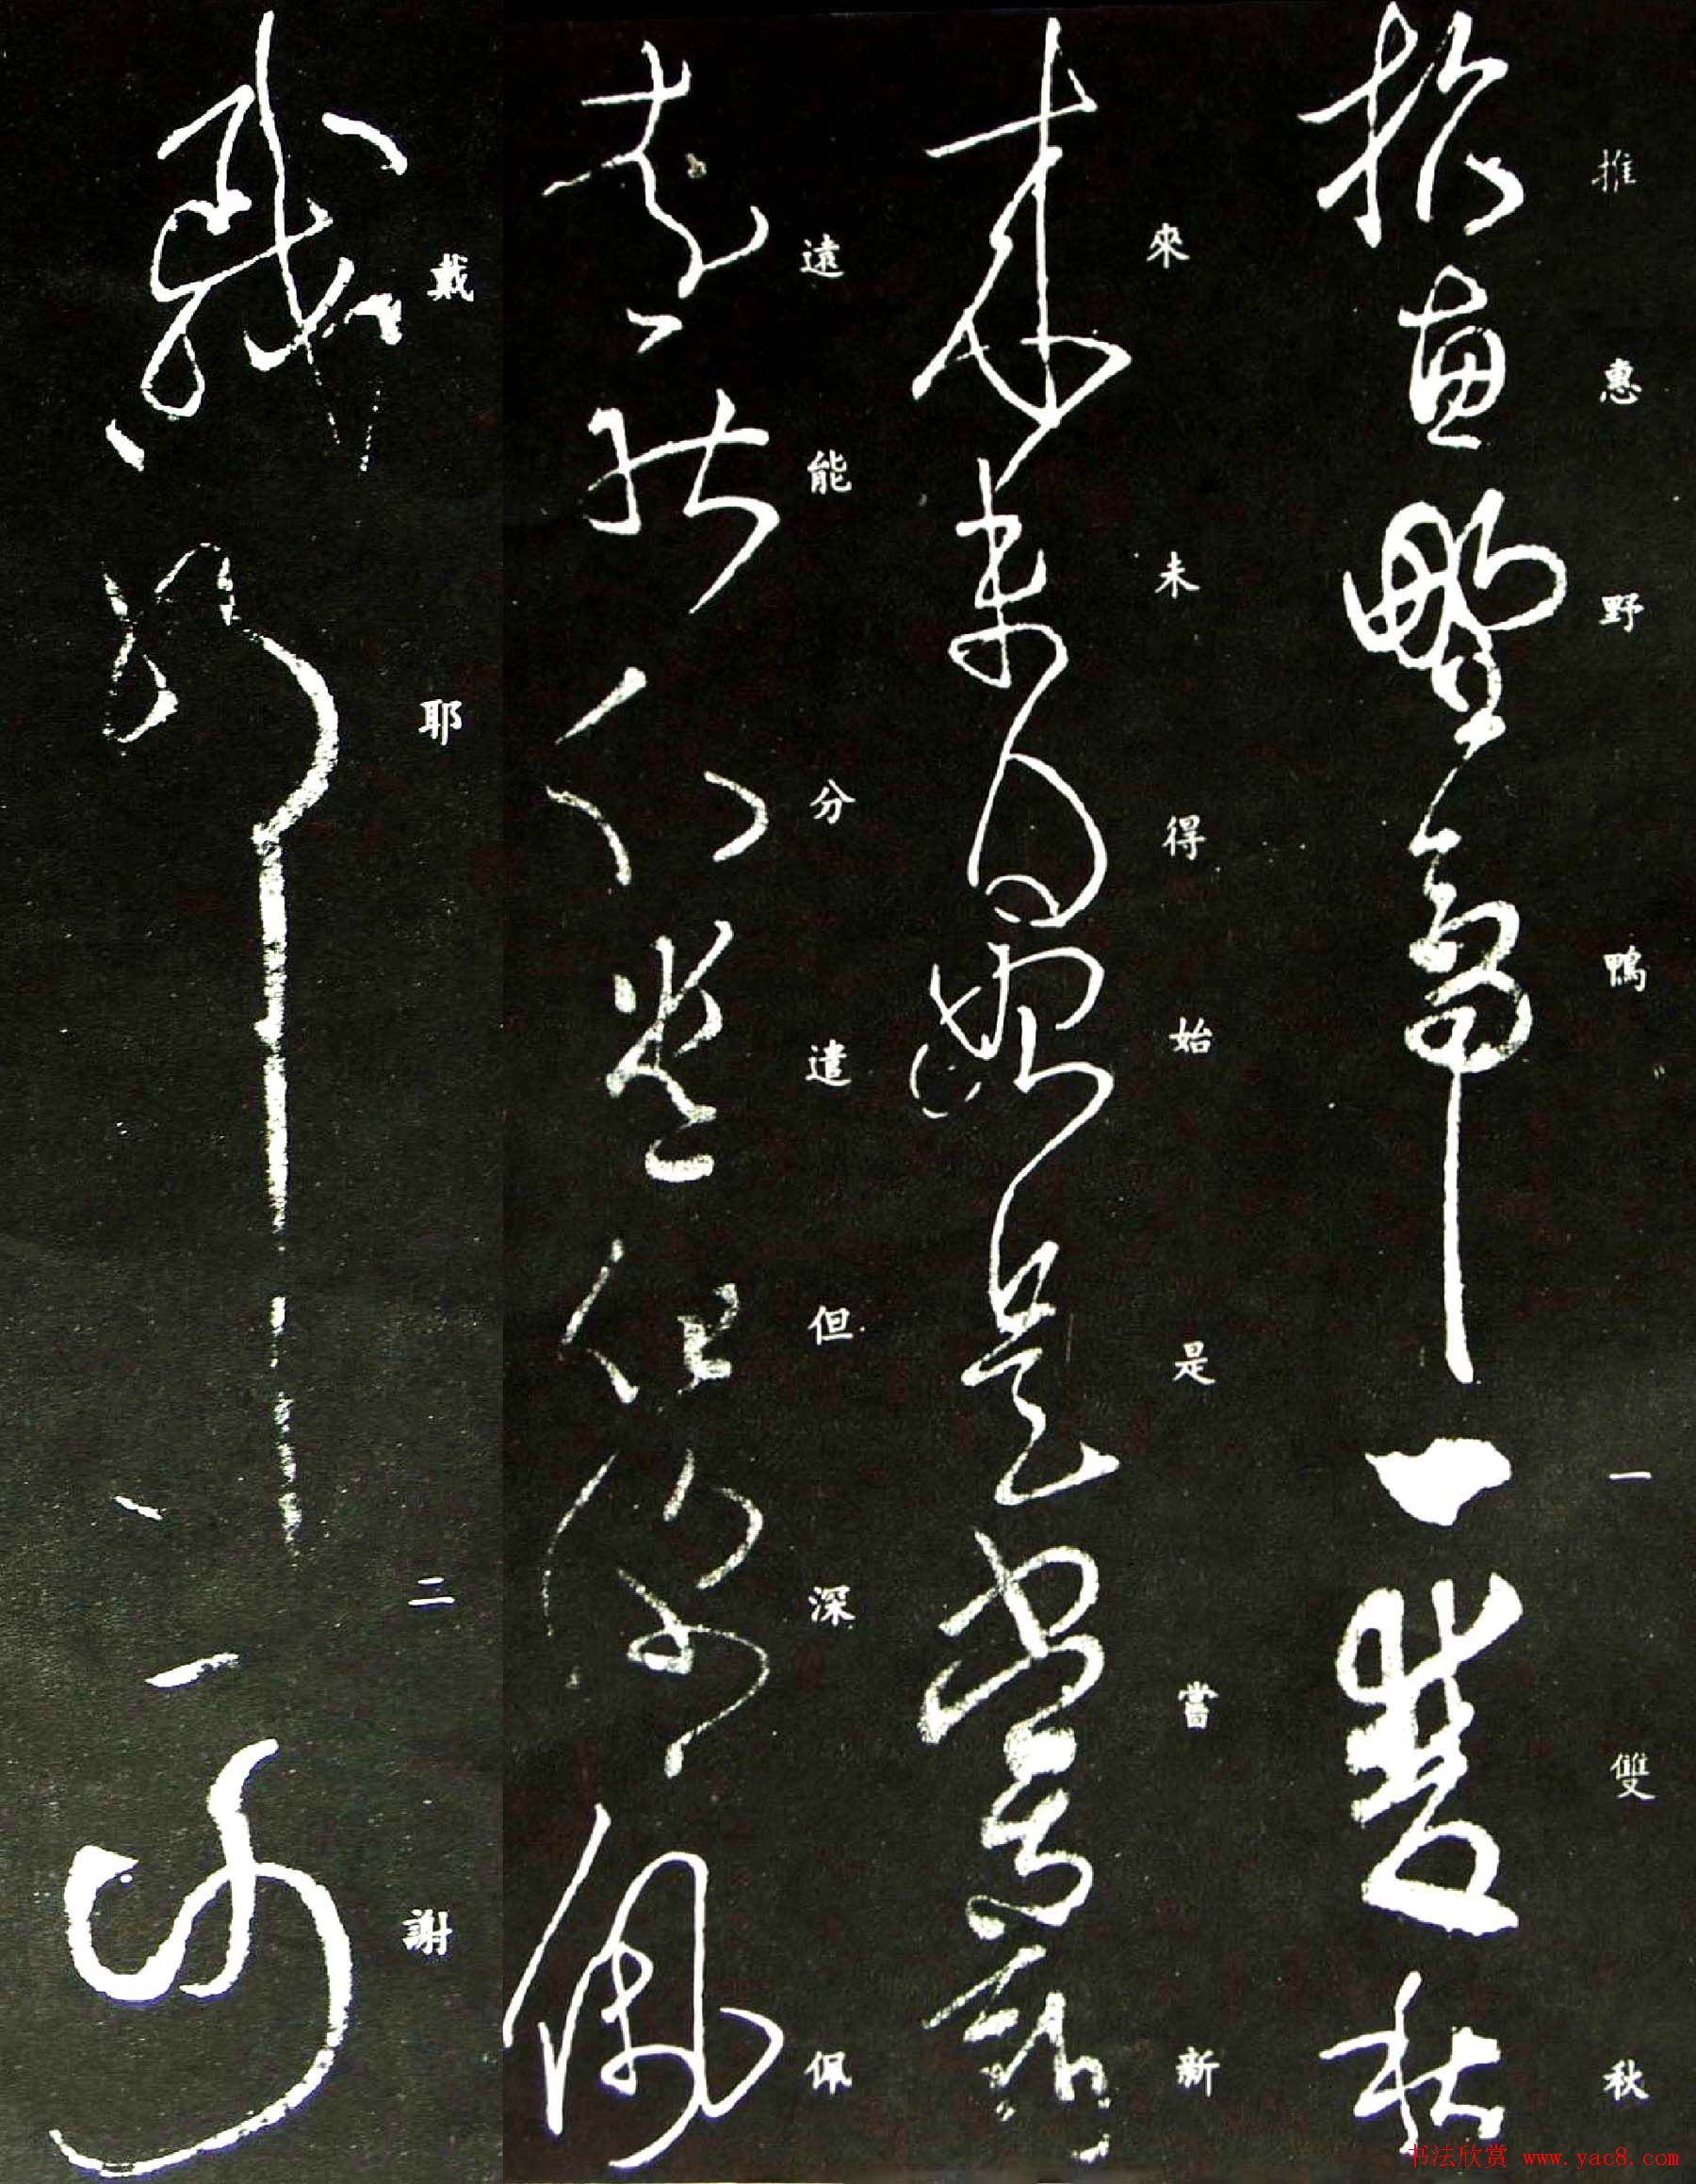 推惠野鴨一雙秋
來未得始是當新
遠能分遣但深佩
戴耶二謝
书法欣赏 www.yac8.com